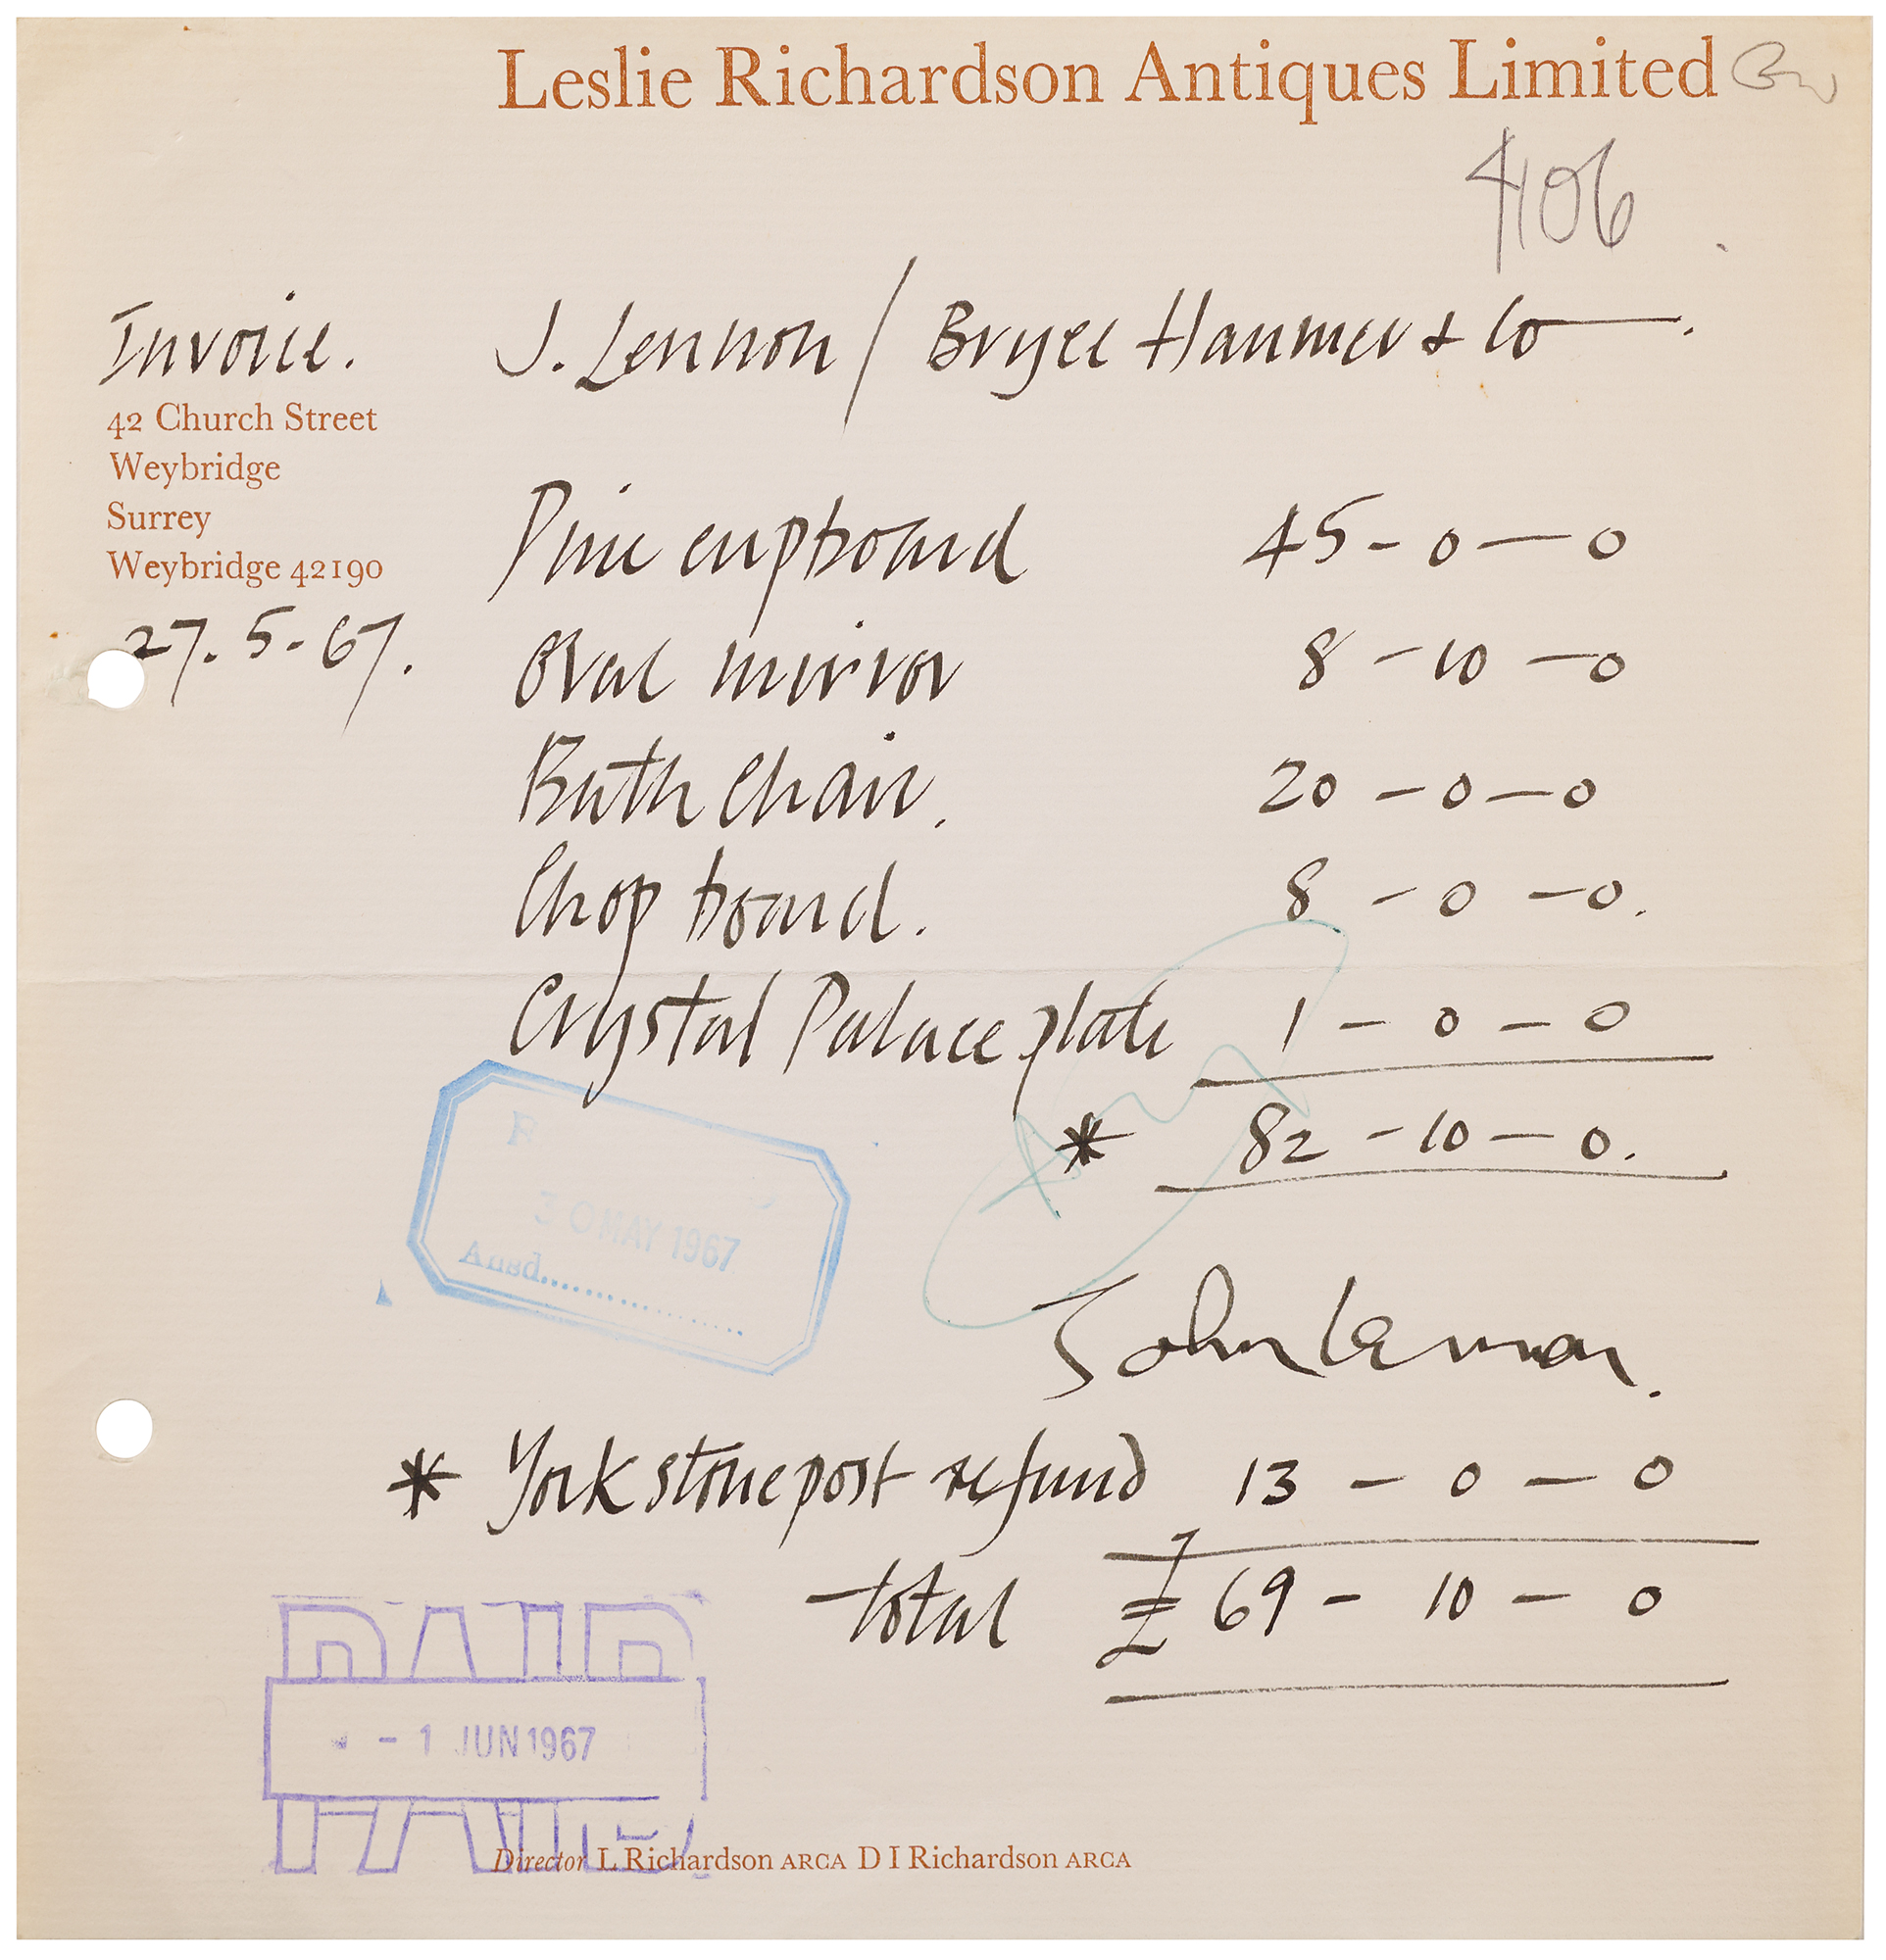 Leslie Richardson Antiques Limited
406
Invoice. J. Lennon / Bryce Hanmer & Co
42 Church Street
Weybridge
Surrey
Weybridge 42190
27.5.67.
Pine cupboard 45 - 0 - 0
Oval mirror 8 - 10 - 0
Bath Chair. 20 - 0 - 0
Chop board. 8 - 0 - 0.
Crystal Palace plate 1 - 0 - 0
* 82 - 10 - 0.
30 MAY 1967
Ansd....................
John Lennon.
* York stone post refund 13 - 0 - 0
total £ 69 - 10 - 0
PAID
- 1 JUN 1967
PAID
Director L Richardson ARCA D I Richardson ARCA